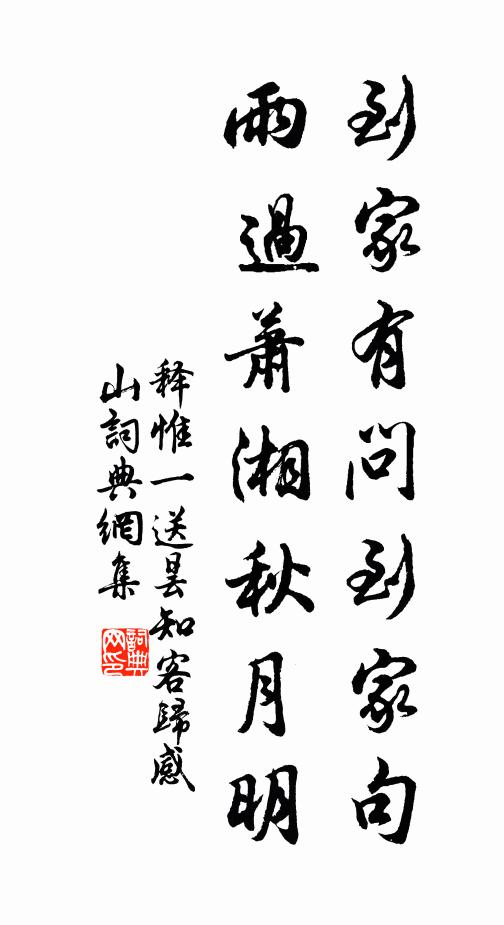 到家有問到家句
雨過蕭湘秋月明
释惟一送昙知客歸感
山詞典網集
詞典网印